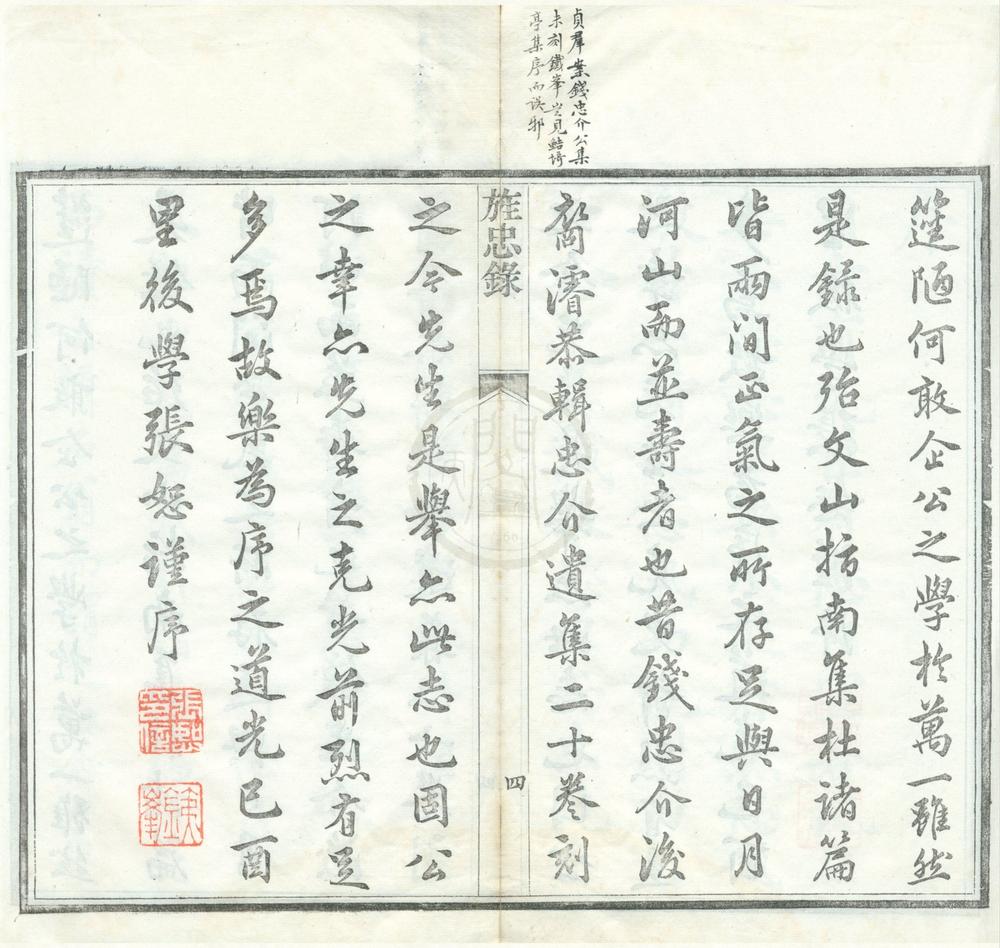 貞羣案錢忠介公集
未刻鐵峯豈見鮚埼
亭集序而誤邪
陋何敢企公之學於萬一雖然
是錄也殆文山指南集杜諸篇
皆兩間正氣之所存足與日月
河山而並壽者也昔錢忠介後
裔濬恭輯忠介遺集二十卷刻
旌忠錄
四
之今先生是舉亦此志也固公
之幸亦先生之克光前烈有足
多焉故樂為序之道光己酉
里後學張恕謹序